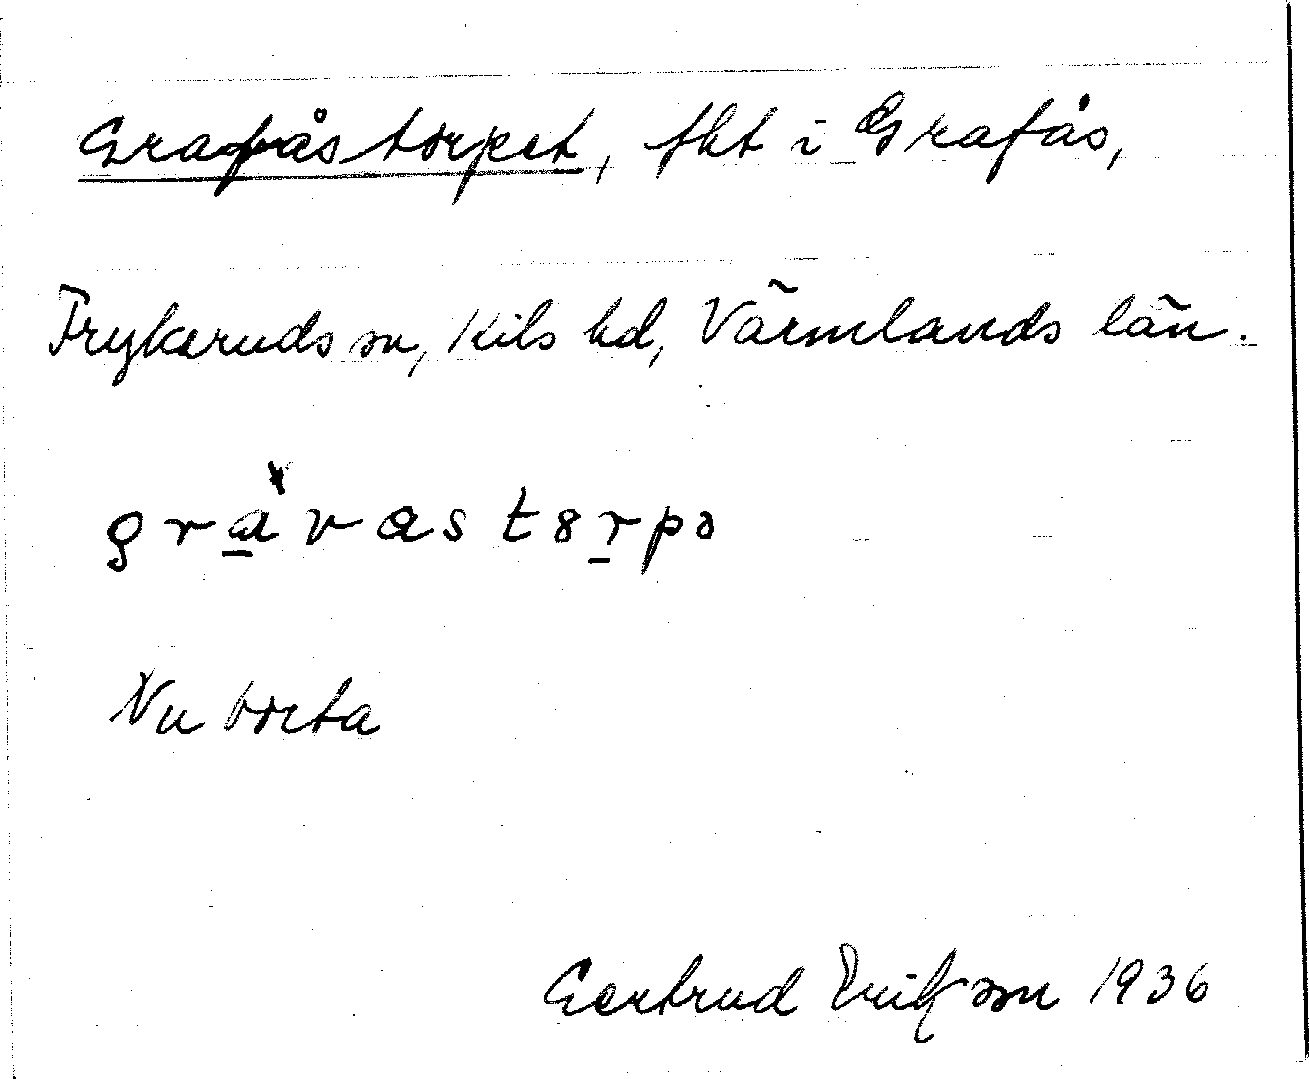 Grafåstorpet, fht i Grafås,
Frykeruds sn, Kils hd, Värmlands län.
gra̱vas to̱rpə
Nu borta
Gertrud Erikson 1936